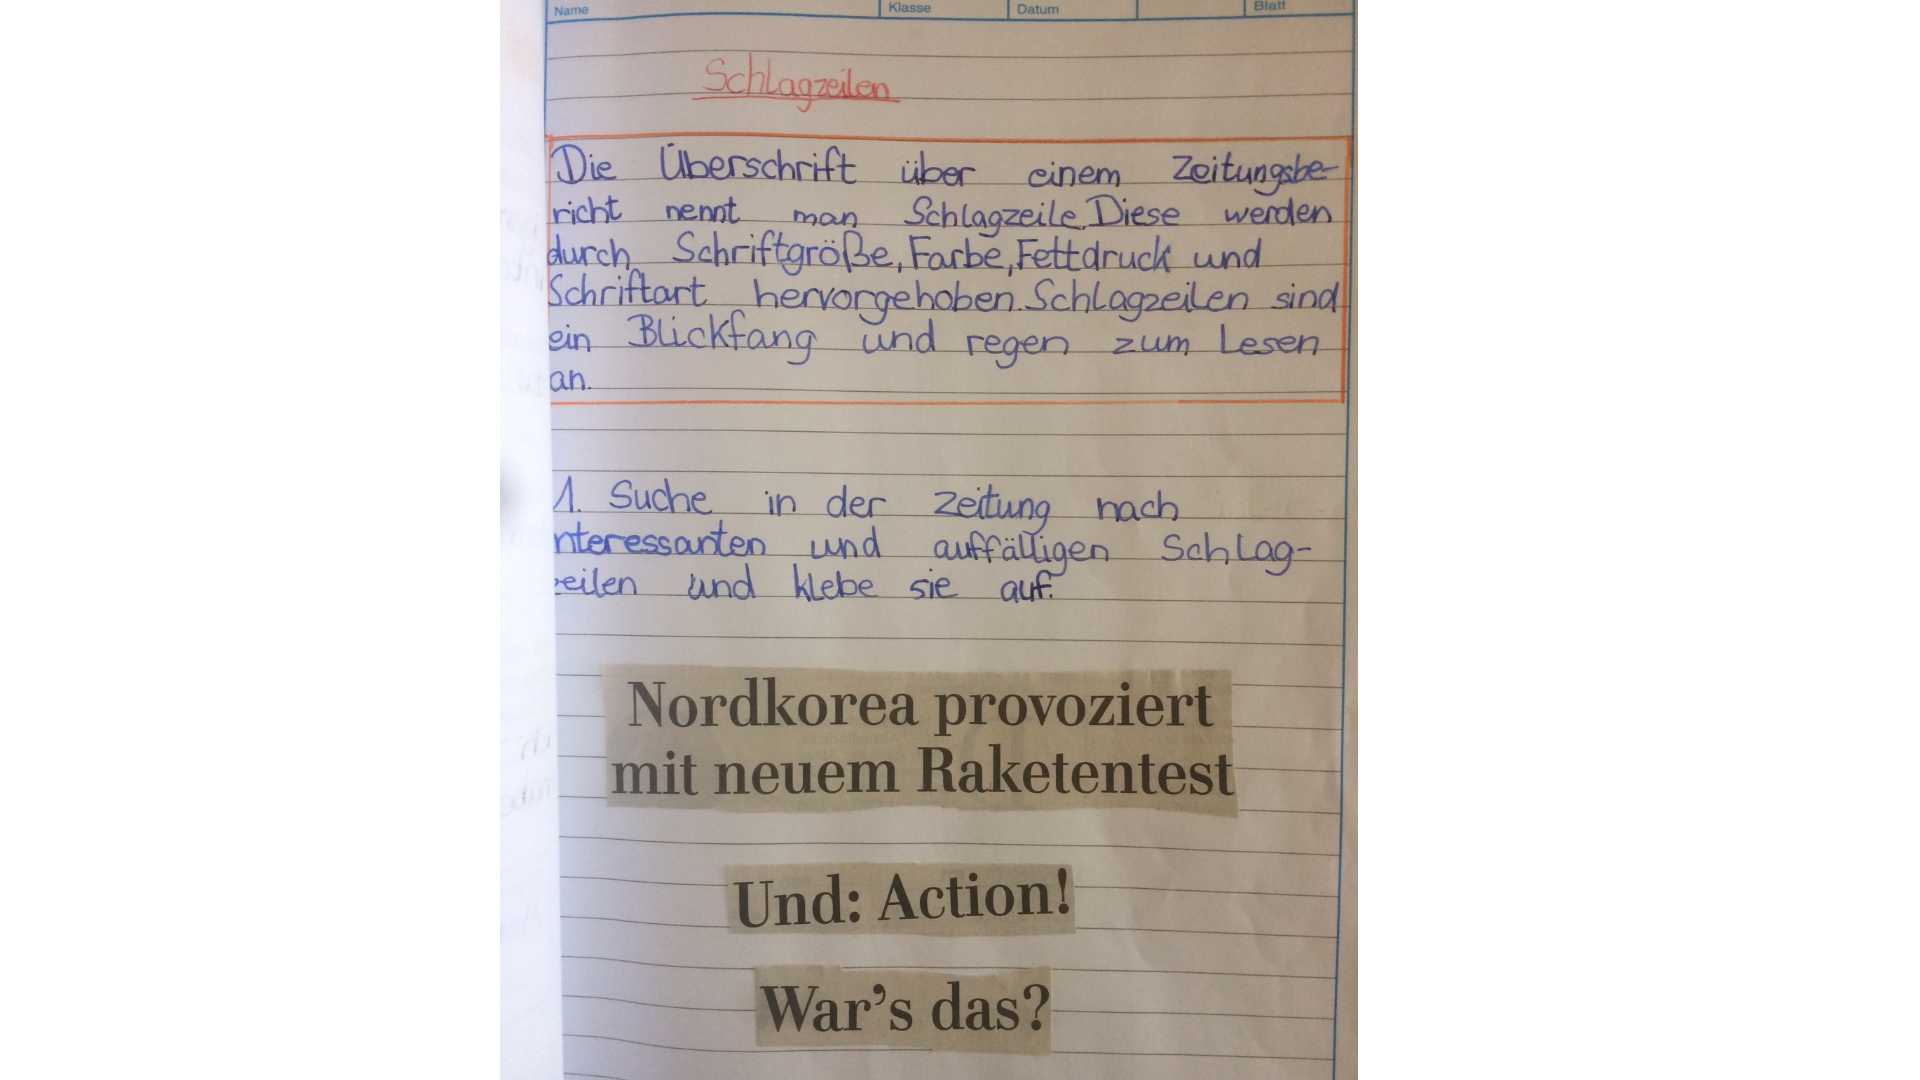 Name Klasse Datum Blatt
Schlagzeilen
Die Überschrift über einem Zeitungsbe-
richt nennt man Schlagzeile. Diese werden
durch Schriftgröße, Farbe, Fettdruck und
Schriftart hervorgehoben. Schlagzeilen sind
ein Blickfang und regen zum Lesen
an.
1. Suche in der Zeitung nach
nteressanten und auffälligen Schlag-
zeilen und klebe sie auf.
Nordkorea provoziert
mit neuem Raketentest
Und: Action!
War's das?